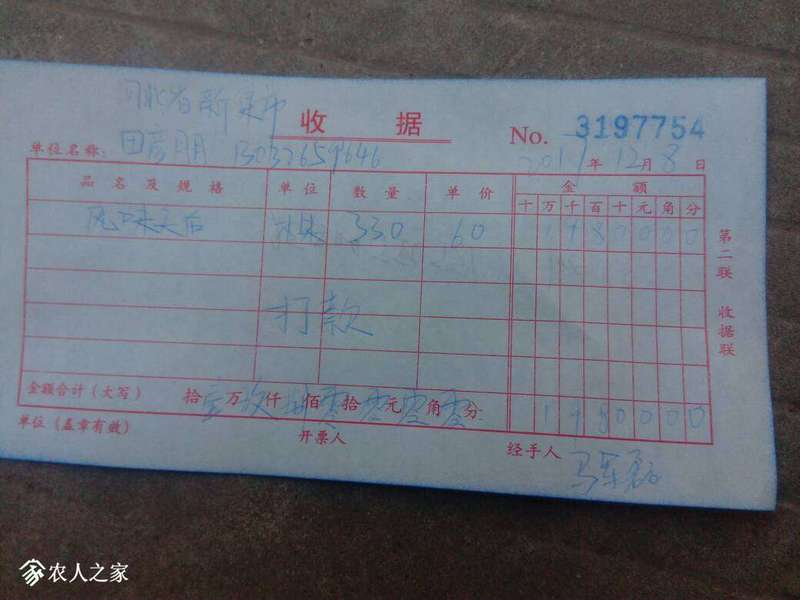 河北省新乐市
收 据
No. 3197754
单位名称: 田彦朋 13032659646
2017年12月8日
品名及规格 单位 数量 单价 金额
十 万 千 百 十 元 角 分
风味天后 330 60 1980000
打款
金额合计（大写） 拾壹万玖仟捌佰零拾零元零角零分 1980000
单位（盖章有效） 开票人 经手人
第二联 收据联
农人之家